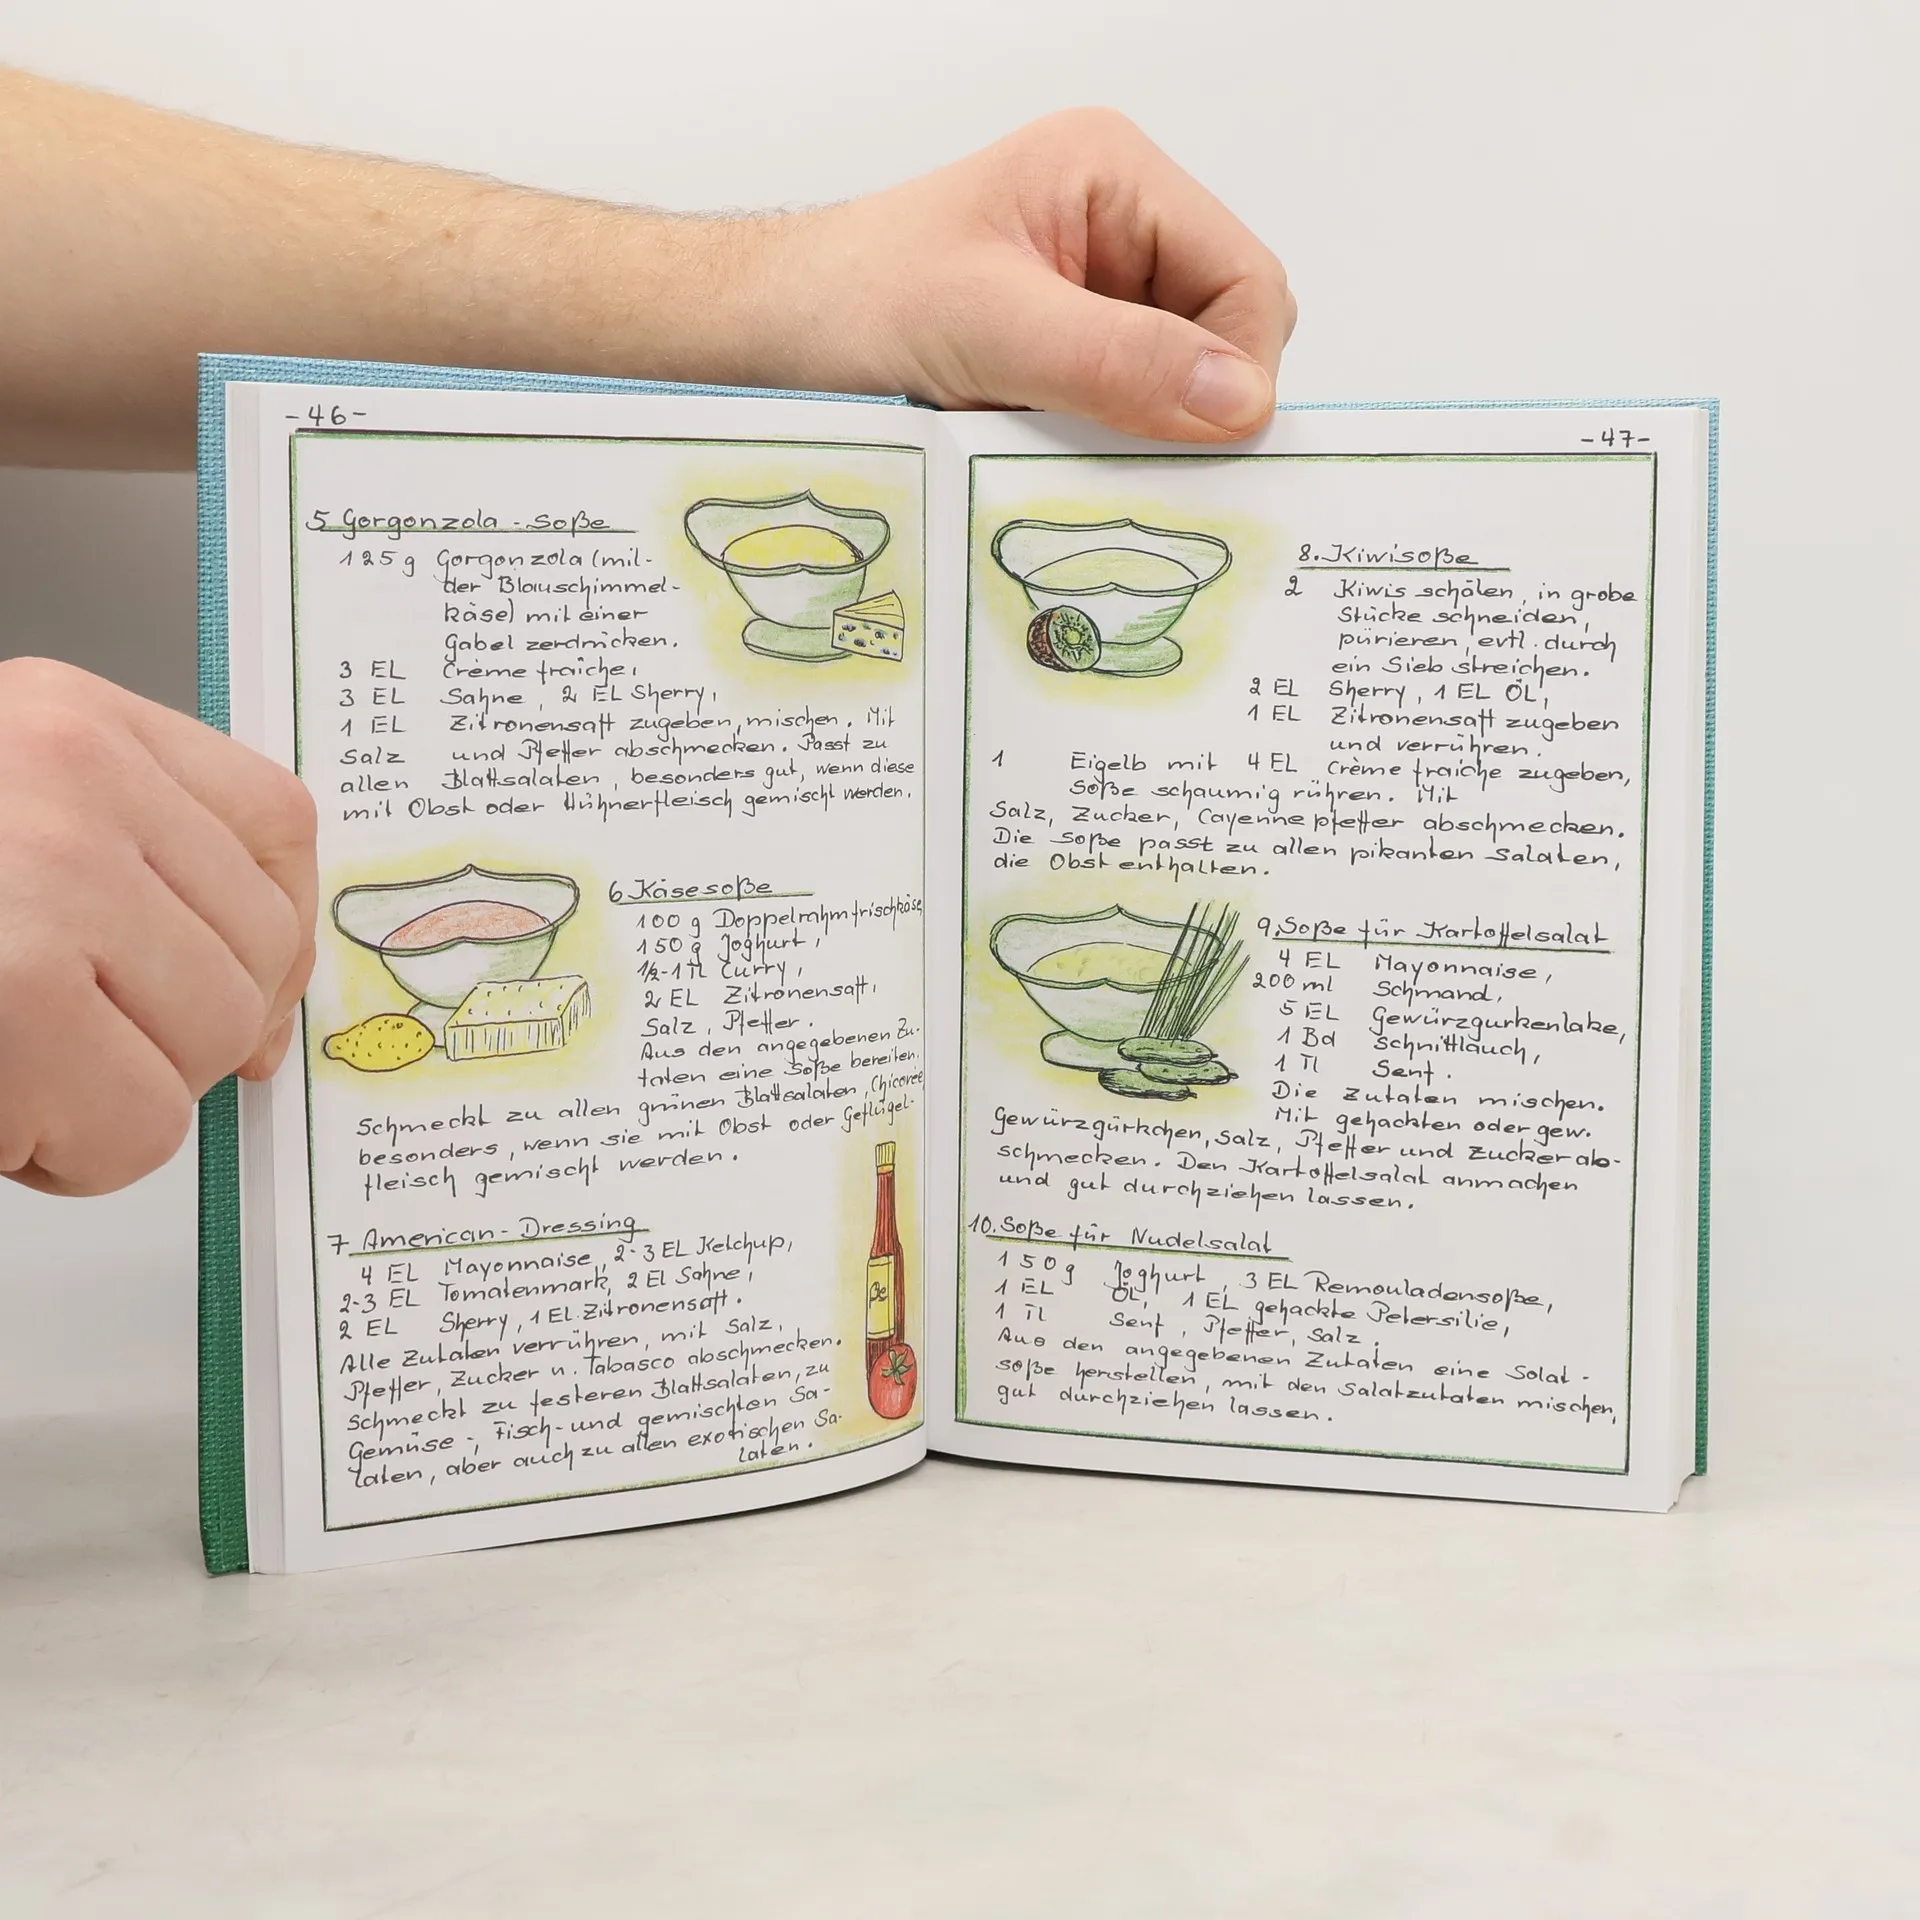 -46-
5 Gorgonzola-Soße
125 g Gorgonzola (mil-
der Blauschimmel-
käse) mit einer
Gabel zerdrücken.
3 EL Crème fraîche,
3 EL Sahne, 2 EL Sherry,
1 EL Zitronensaft zugeben, mischen. Mit
Salz und Pfeffer abschmecken. Passt zu
allen Blattsalaten, besonders gut, wenn diese
mit Obst oder Hühnerfleisch gemischt werden.
6 Käsesoße
100 g Doppelrahmfrischkäse
150 g Joghurt,
1/2-1 Tl Curry,
2 EL Zitronensaft,
Salz, Pfeffer.
Aus den angegebenen Zu-
taten eine Soße bereiten.
Schmeckt zu allen grünen Blattsalaten, Chicorée
besonders, wenn sie mit Obst oder Geflügel-
fleisch gemischt werden.
7 American-Dressing
4 EL Mayonnaise, 2-3 EL Ketchup,
2-3 EL Tomatenmark, 2 El Sahne,
2 EL Sherry, 1 El Zitronensaft.
Alle Zutaten verrühren, mit Salz,
Pfeffer, Zucker u. Tabasco abschmecken.
Schmeckt zu festeren Blattsalaten, zu
Gemüse-, Fisch- und gemischten Sa-
laten, aber auch zu allen exotischen Sa-
laten.
Be
-47-
8. Kiwisoße
2 Kiwis schälen, in grobe
Stücke schneiden,
pürieren, evtl. durch
ein Sieb streichen.
2 EL Sherry, 1 EL ÖL,
1 EL Zitronensaft zugeben
und verrühren.
1 Eigelb mit 4 EL Crème fraîche zugeben,
Soße schaumig rühren. Mit
Salz, Zucker, Cayennepfeffer abschmecken.
Die Soße passt zu allen pikanten Salaten,
die Obst enthalten.
9. Soße für Kartoffelsalat
4 EL Mayonnaise,
200 ml Schmand,
5 EL Gewürzgurkenlake,
1 Bd Schnittlauch,
1 Tl Senf.
Die Zutaten mischen.
Mit gehackten oder gew.
Gewürzgürkchen, Salz, Pfeffer und Zucker ab-
schmecken. Den Kartoffelsalat anmachen
und gut durchziehen lassen.
10. Soße für Nudelsalat
150 g Joghurt, 3 EL Remouladensoße,
1 EL ÖL, 1 EL gehackte Petersilie,
1 Tl Senf, Pfeffer, Salz.
Aus den angegebenen Zutaten eine Salat-
soße herstellen, mit den Salatzutaten mischen,
gut durchziehen lassen.